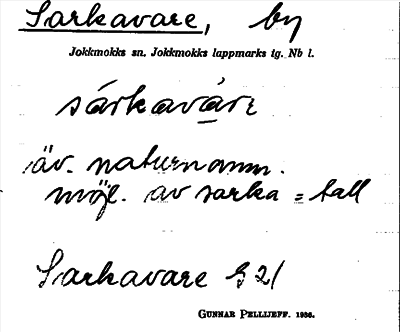 Sarkavare, by
Jokkmokks sn. Jokkmokks lappmarks tg. Nb l.
sárkavárε
äv. naturnamn.
möjl. av sarka = tall
Sarkavare § 21
GUNNAR PELLIJEFF. 1936.